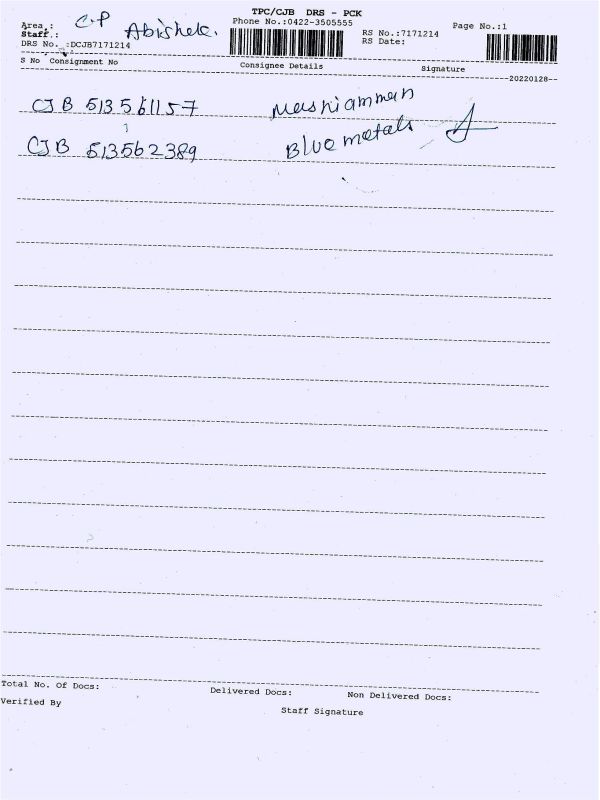 TPC/CJB DRS - PCK
Area.: C.P Phone No.:0422-3505555 Page No.:1
Staff.: Abishek. RS No.:7171214
DRS No. :DCJB7171214 RS Date:
S No Consignment No Consignee Details Signature
20220128
CJB 513561157 Masniamman
CJB 513562389 Blue metals
Total No. Of Docs: Delivered Docs: Non Delivered Docs:
Verified By Staff Signature